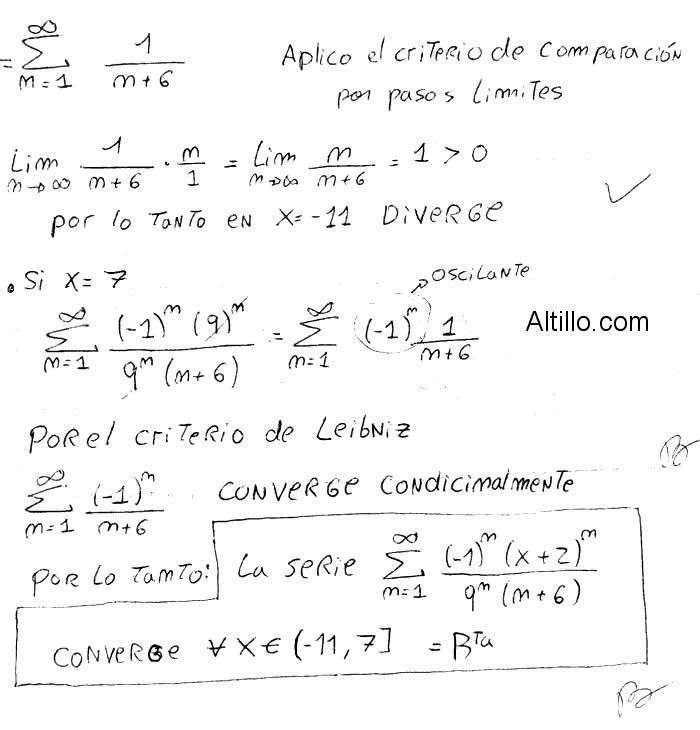 = ∑_{n=1}^{∞} 1/(n+6) Aplico el criterio de comparación
por pasos limites
Lim_{n→∞} 1/(n+6) · n/1 = Lim_{n→∞} n/(n+6) = 1 > 0
por lo tanto en x=-11 DIVERGE
• Si x=7
∑_{n=1}^{∞} (-1)^n (9)^n / 9^n (n+6) = ∑_{n=1}^{∞} (-1)^n 1/(n+6) → oscilante
Altillo.com
por el criterio de Leibniz
∑_{n=1}^{∞} (-1)^n/(n+6) converge condicimalmente
por lo tamto: La serie ∑_{n=1}^{∞} (-1)^n (x+2)^n / 9^n (n+6)
converge ∀ x ∈ (-11, 7] = Rta